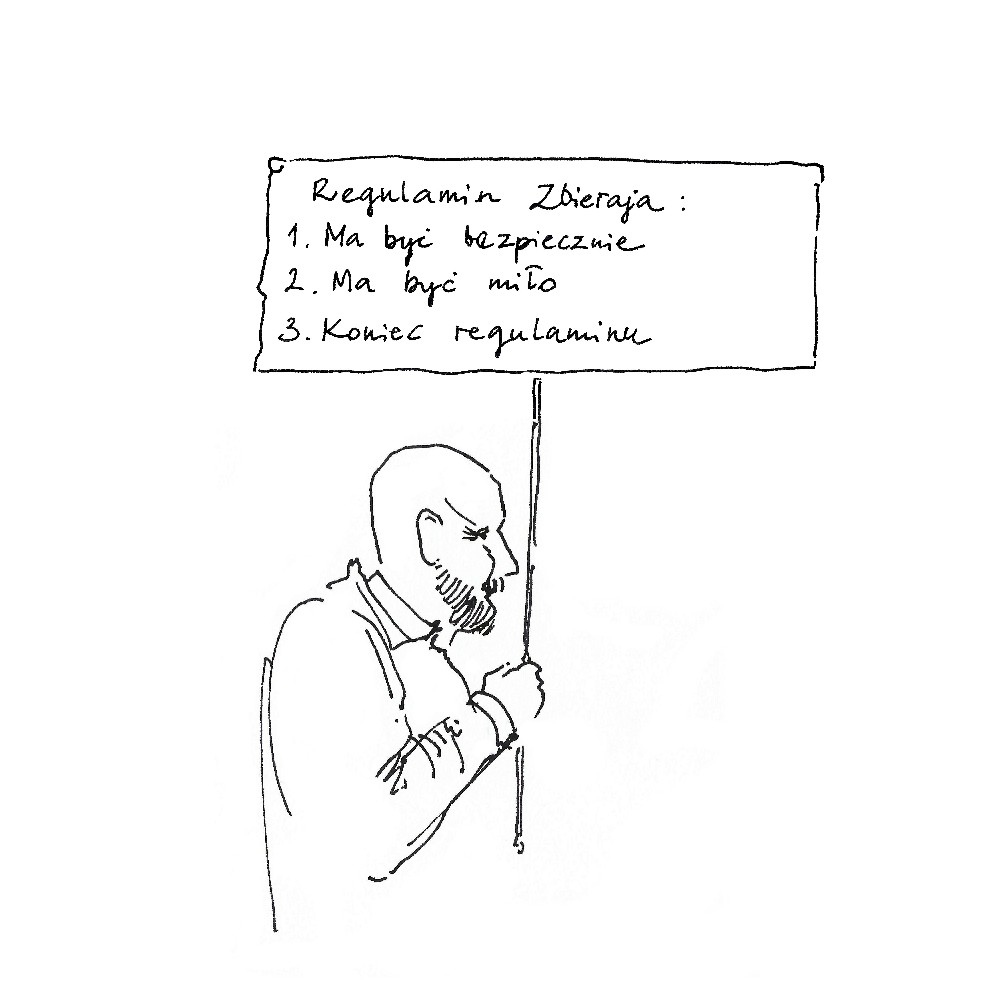 Regulamin Zbieraja :
1. Ma być bezpiecznie
2. Ma być miło
3. Koniec regulaminu